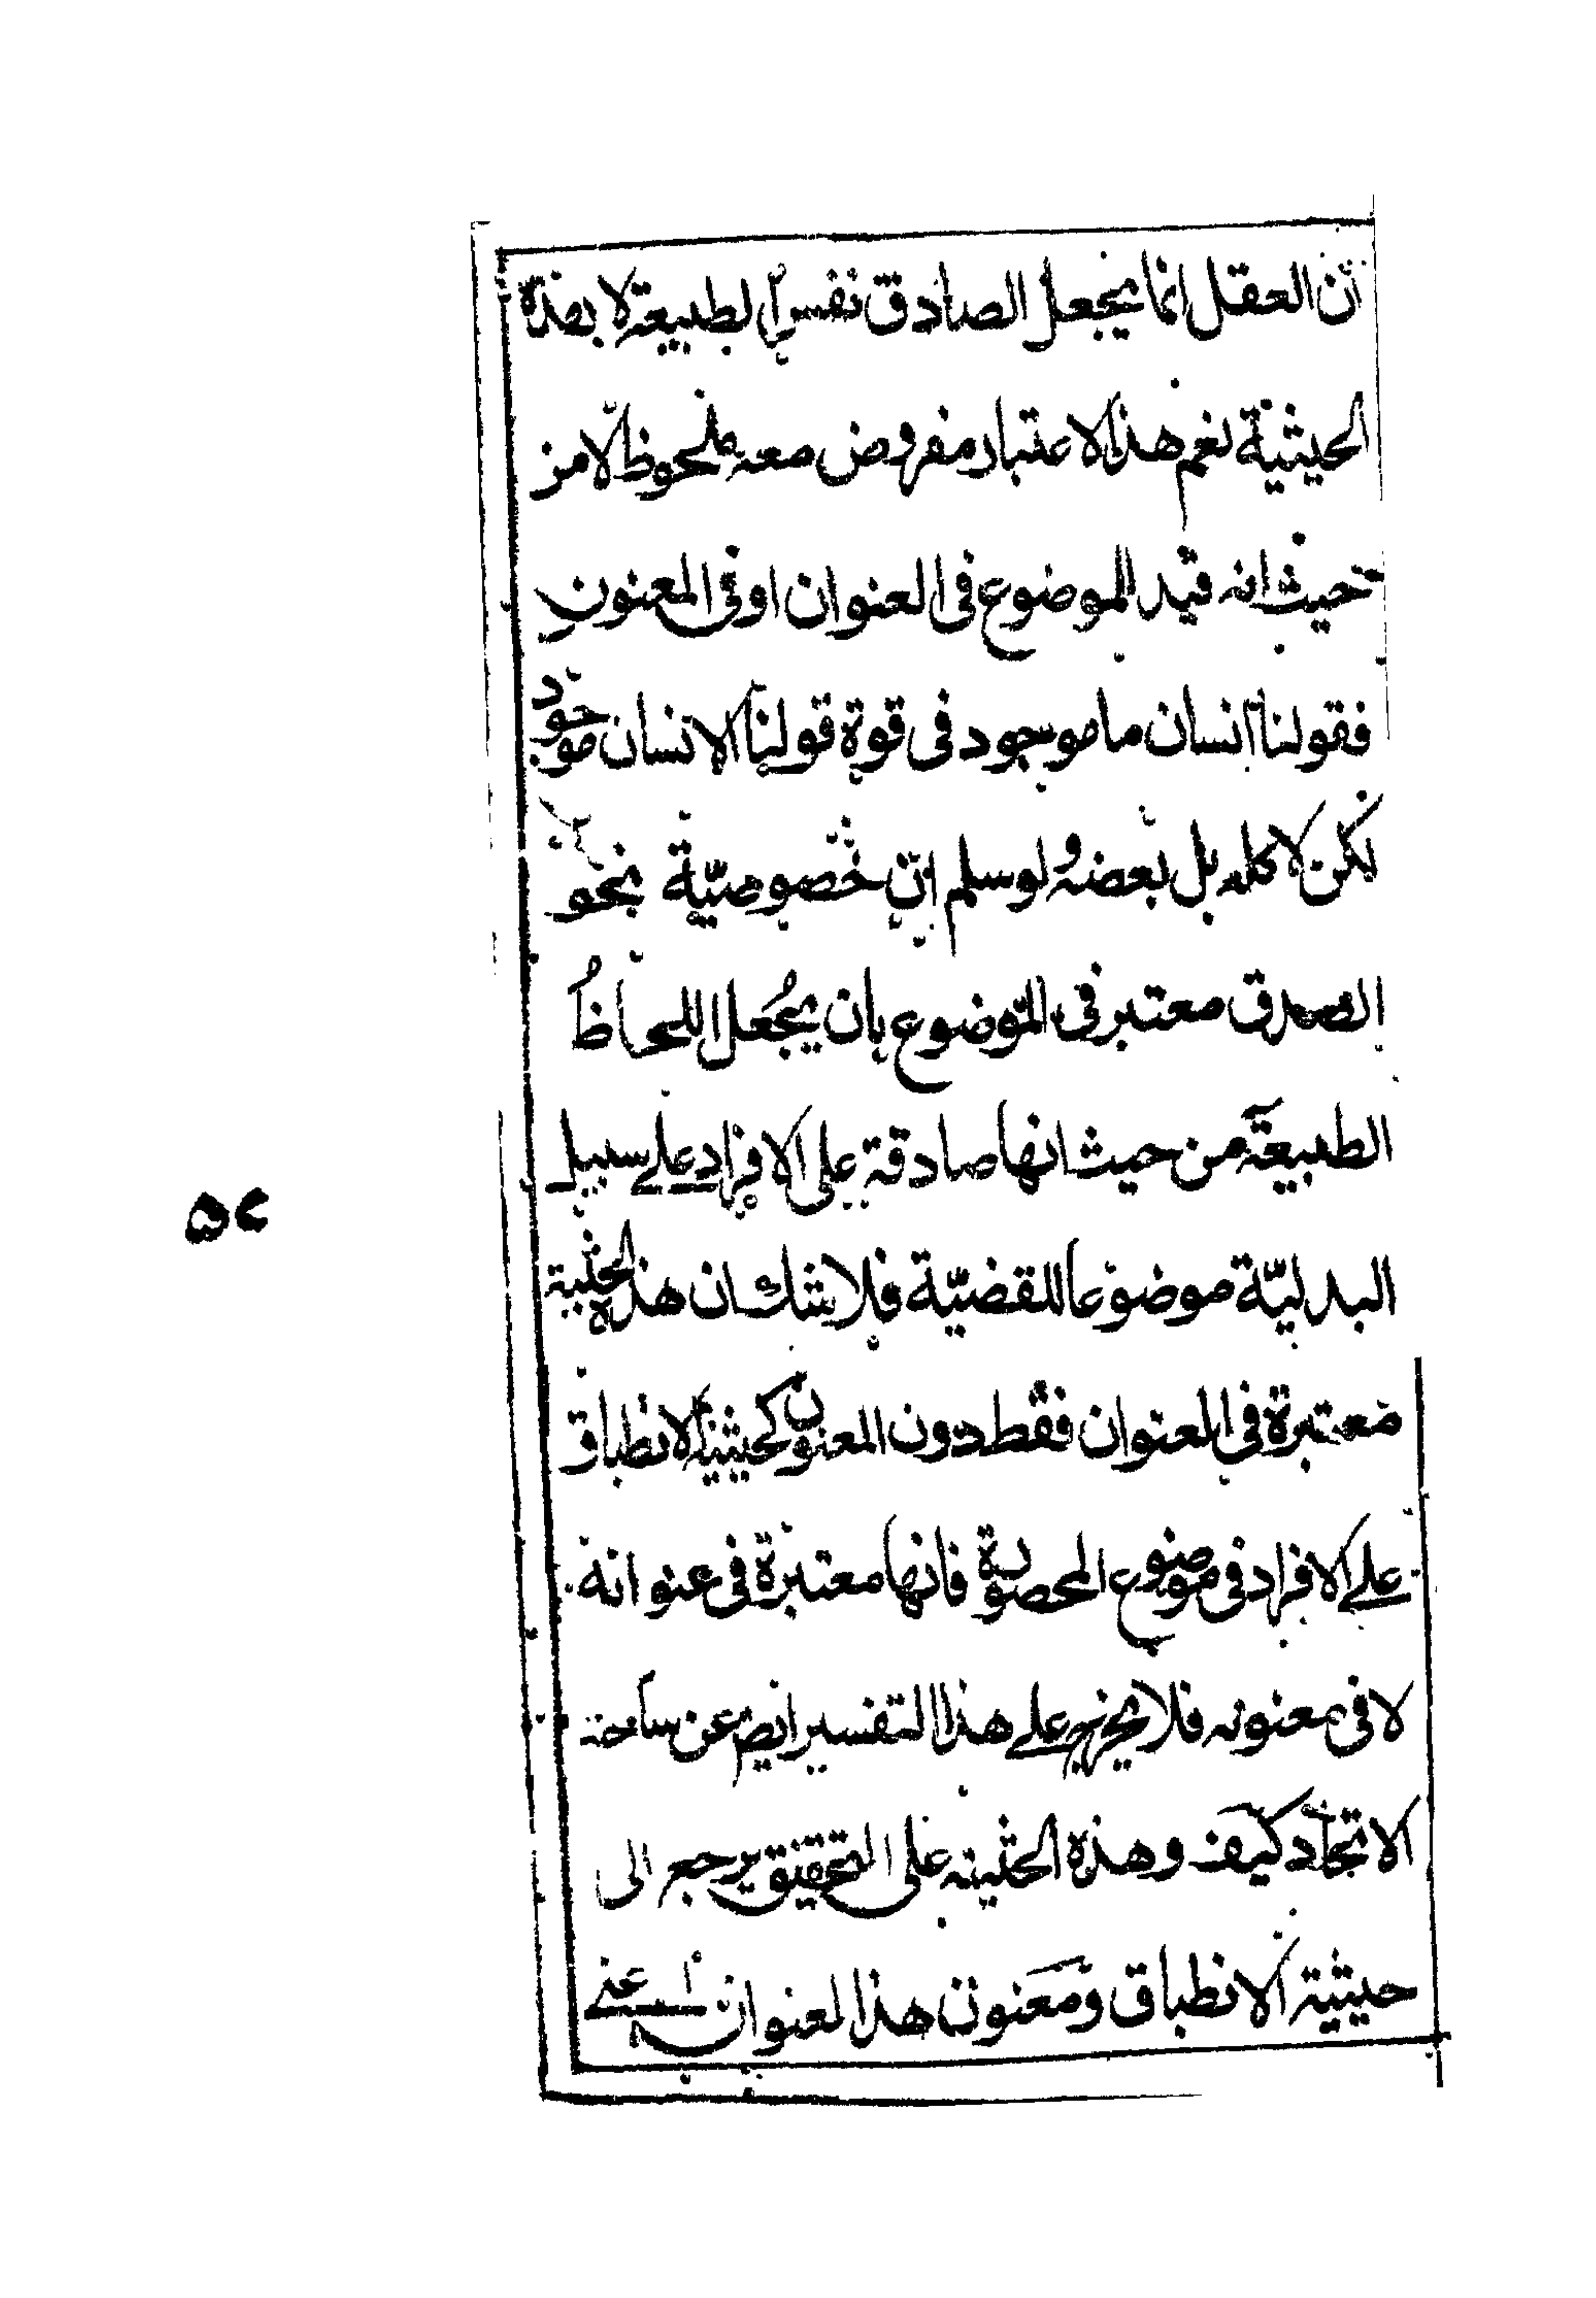 ان العقل انما يجعل الصادق نفس الطبيعة لا بهذه
الحيثية نعم هذا الاعتبار مفروض معه ملحوظ لا من
حيث انه قيد الموضوع فى العنوان او فى المعنون
فقولنا انسان ما موجود فى قوة قولنا الانسان موجود
لكن لا كله بل بعضه ولو سلم ان خصوصيّة نحو
الصدق معتبر فى الموضوع بان يُجعل اللحاظُ
الطبيعة من حيث انها صادقة على الافراد علے سبيل
البدليّة موضوعا للقضيّة فلا شك ان هذه الحيثية
معتبرة فى العنوان فقط دون المعنون كحيثية الانطباق
علے الافراد فى موضوع المحصورة فانها معتبرة فى عنوانه
لا فى معنونه فلا يخرج علے هذا التفسير ايضا عن ساحة
الاتحاد كيف وهذه الحيثية على التحقيق يرجع الى
حيثية الانطباق ومعنون هذا العنوان اعنے
۵۲